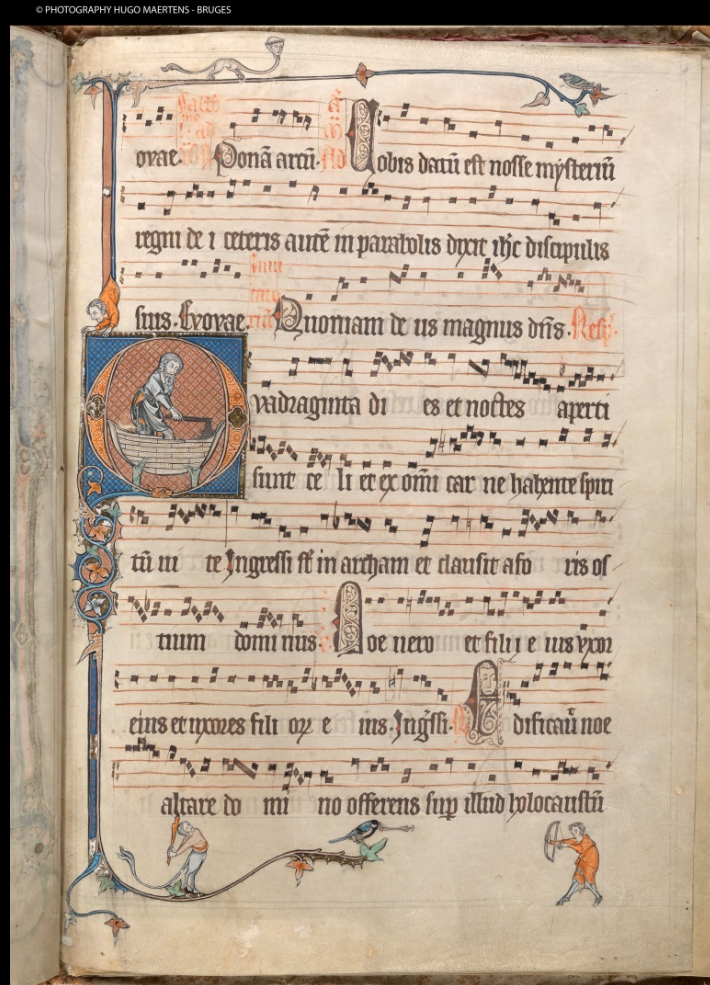 © PHOTOGRAPHY HUGO MAERTENS - BRUGES
ovae. Ponā arcū. Uobis datū est nosse mysteriū
regni dei ceteris autē in parabolis dixit ihc discipulis
suis. Evovae. Quoniam deus magnus dñs. Resp.
Quadraginta di es et noctes aperti
sunt ce li et ex omī car ne habente spiri
tū ui te Ingressi sť in archam et clausit afo ris os
tium domi nus. Noe uero et fili i e ius uxor
eius et uxores fili oꝝ e ius. Ingssi. Edificauͭ noe
altare do mi no offerens sup illud holocaustū